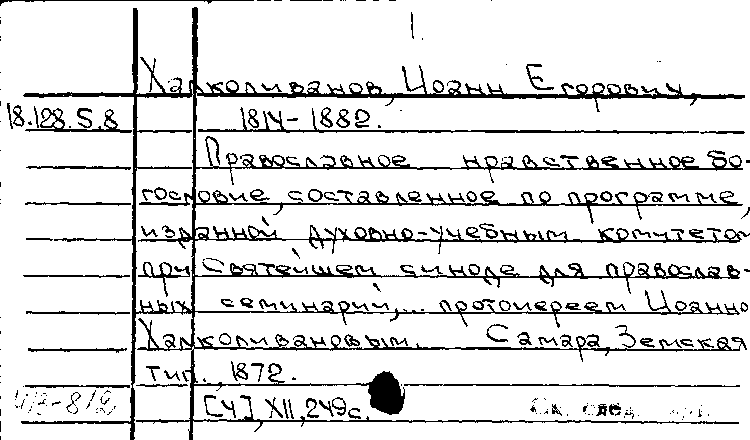 1.
Халколиванов, Иоанн Егорович,
18.128.5.8 1814-1882.
Православное нравственное бо-
гословие, составленное по программе,
изданной духовно-учебным комитетом
при Святейшем синоде для православ-
ных семинарий,... протоиереем Иоанно
Халколивановым. Самара, Земская
тип., 1872.
[4], XII, 249с. См. след.